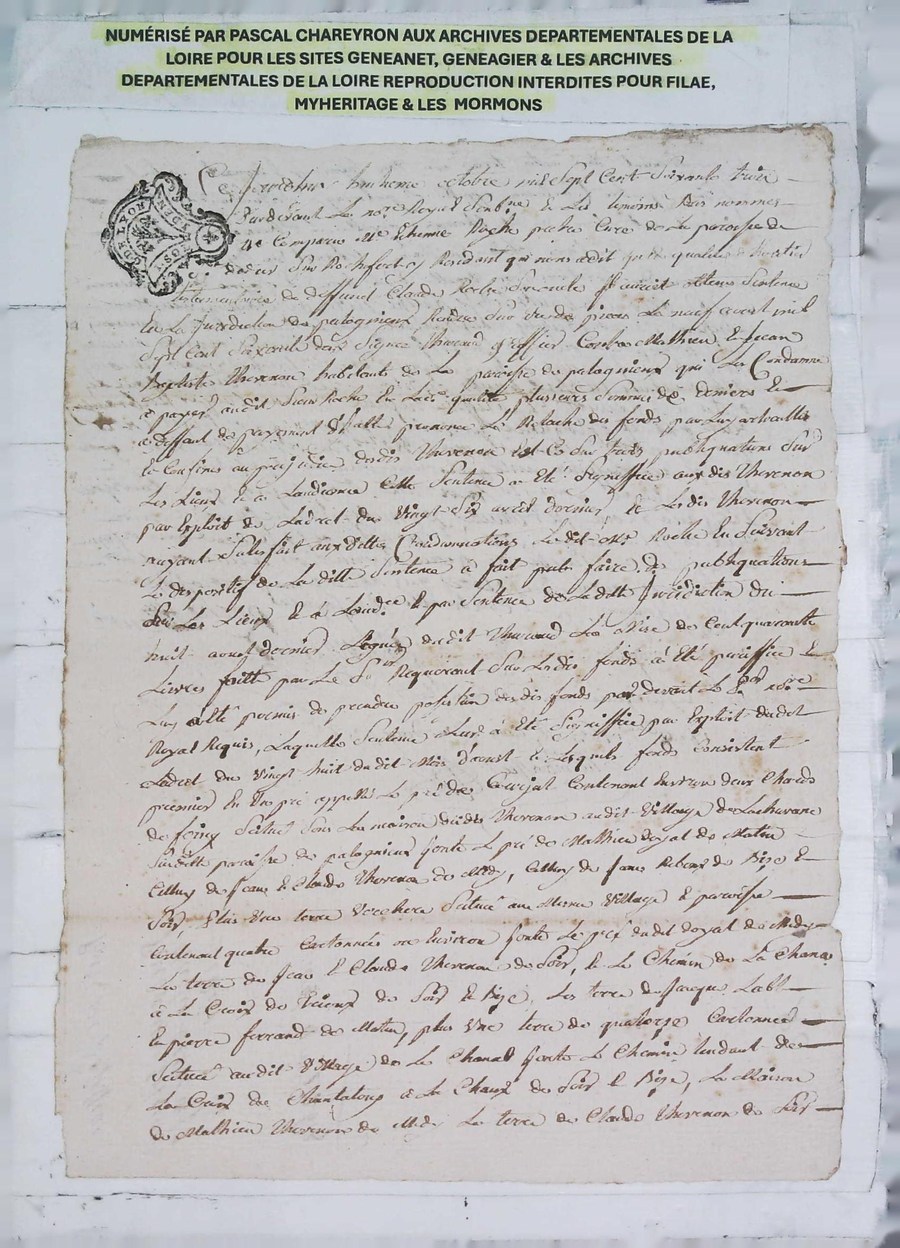 NUMÉRISÉ PAR PASCAL CHAREYRON AUX ARCHIVES DEPARTEMENTALES DE LA
LOIRE POUR LES SITES GENEANET, GENEAGIER & LES ARCHIVES
DEPARTEMENTALES DE LA LOIRE REPRODUCTION INTERDITES POUR FILAE,
MYHERITAGE & LES MORMONS
octobre mil Sept Cent Soixante trois
Pardevant Le no.re Royal & Les temoins Bas nommes
Comparu M.e Etienne Roche pretre Curé de La paroisse de
Sur Rochefort y Resident qui nous a dit qualité
de deffunt Claude Roche il auroit obtenu Sentence
En La Jurisdiction de palogneux Le neuf avril mil
Sept Cent Soixante deux Signée greffier Contre Mathieu & Jean
Baptiste Thevenon habitants de La paroisse de palogneux qui Les Condamne
a payer audit Sieur Roche En Lade qualité plusieurs Sommes de deniers &
a deffaut de payement prononce Le Relache des fonds par Luy
au prejudice desdis Thevenon Sur trois publiquations Sur
Les Lieux & a Laudience Cette Sentence a Eté Signiffiée auxdis Thevenon
par Exploit de Ladret du Vingt Six avril dernier & Lesdis Thevenon
n'ayant Satisfait auxdittes Condamnations Ledit M.e Roche En Suivant
Le dispositif de La ditte Sentence a fait faire de publiquations
Sur Les Lieux & a Laud.ce & par Sentence de Laditte Jurisdiction du
huit aoust dernier Signée dudit La mise de Cent quarante
Livres faitte par Le S.r Requerant Sur Lesdis fonds a Eté &
Luy a Eté permis de prendre possession desdis fonds par devant Le no.re
Royal Requis, Laquelle Sentence a Eté Signiffiée par Exploit dudit
Ladret du vingt huit dudit Mois d'aoust & Lesquels fonds Consistent
premier En Un pré appellé Le pré de Contenant Environ deux Chards
de foing Scitué Sous La maison desdis Thevenon audit Village de
Suditte paroisse de palogneux joute Le pré de Mathieu doyat de Matin
Celluy de Jean & Claude Thevenon de Midy, Celluy de Jean de Bize &
Soir, plus Une terre Verchere Scituée au Meme Village & paroisse
Contenant quatre Cartonnées ou Environ joute Le pré dudit doyat de Midy
La terre de Jean & Claude Thevenon de Soir, & Le Chemin de La Chanal
a La Croix de de Soir & Bize, Les terre de Jacque
& pierre ferrand de Matin, plus Une terre de quatorze Cartonnées
Scituée audit Village de La Chanal joute Le Chemin tendant de
La Croix de Chantaloup a La Chaux de Soir & Bize, La Maison
de Mathieu Thevenon de Midi La terre de Claude Thevenon de Soir